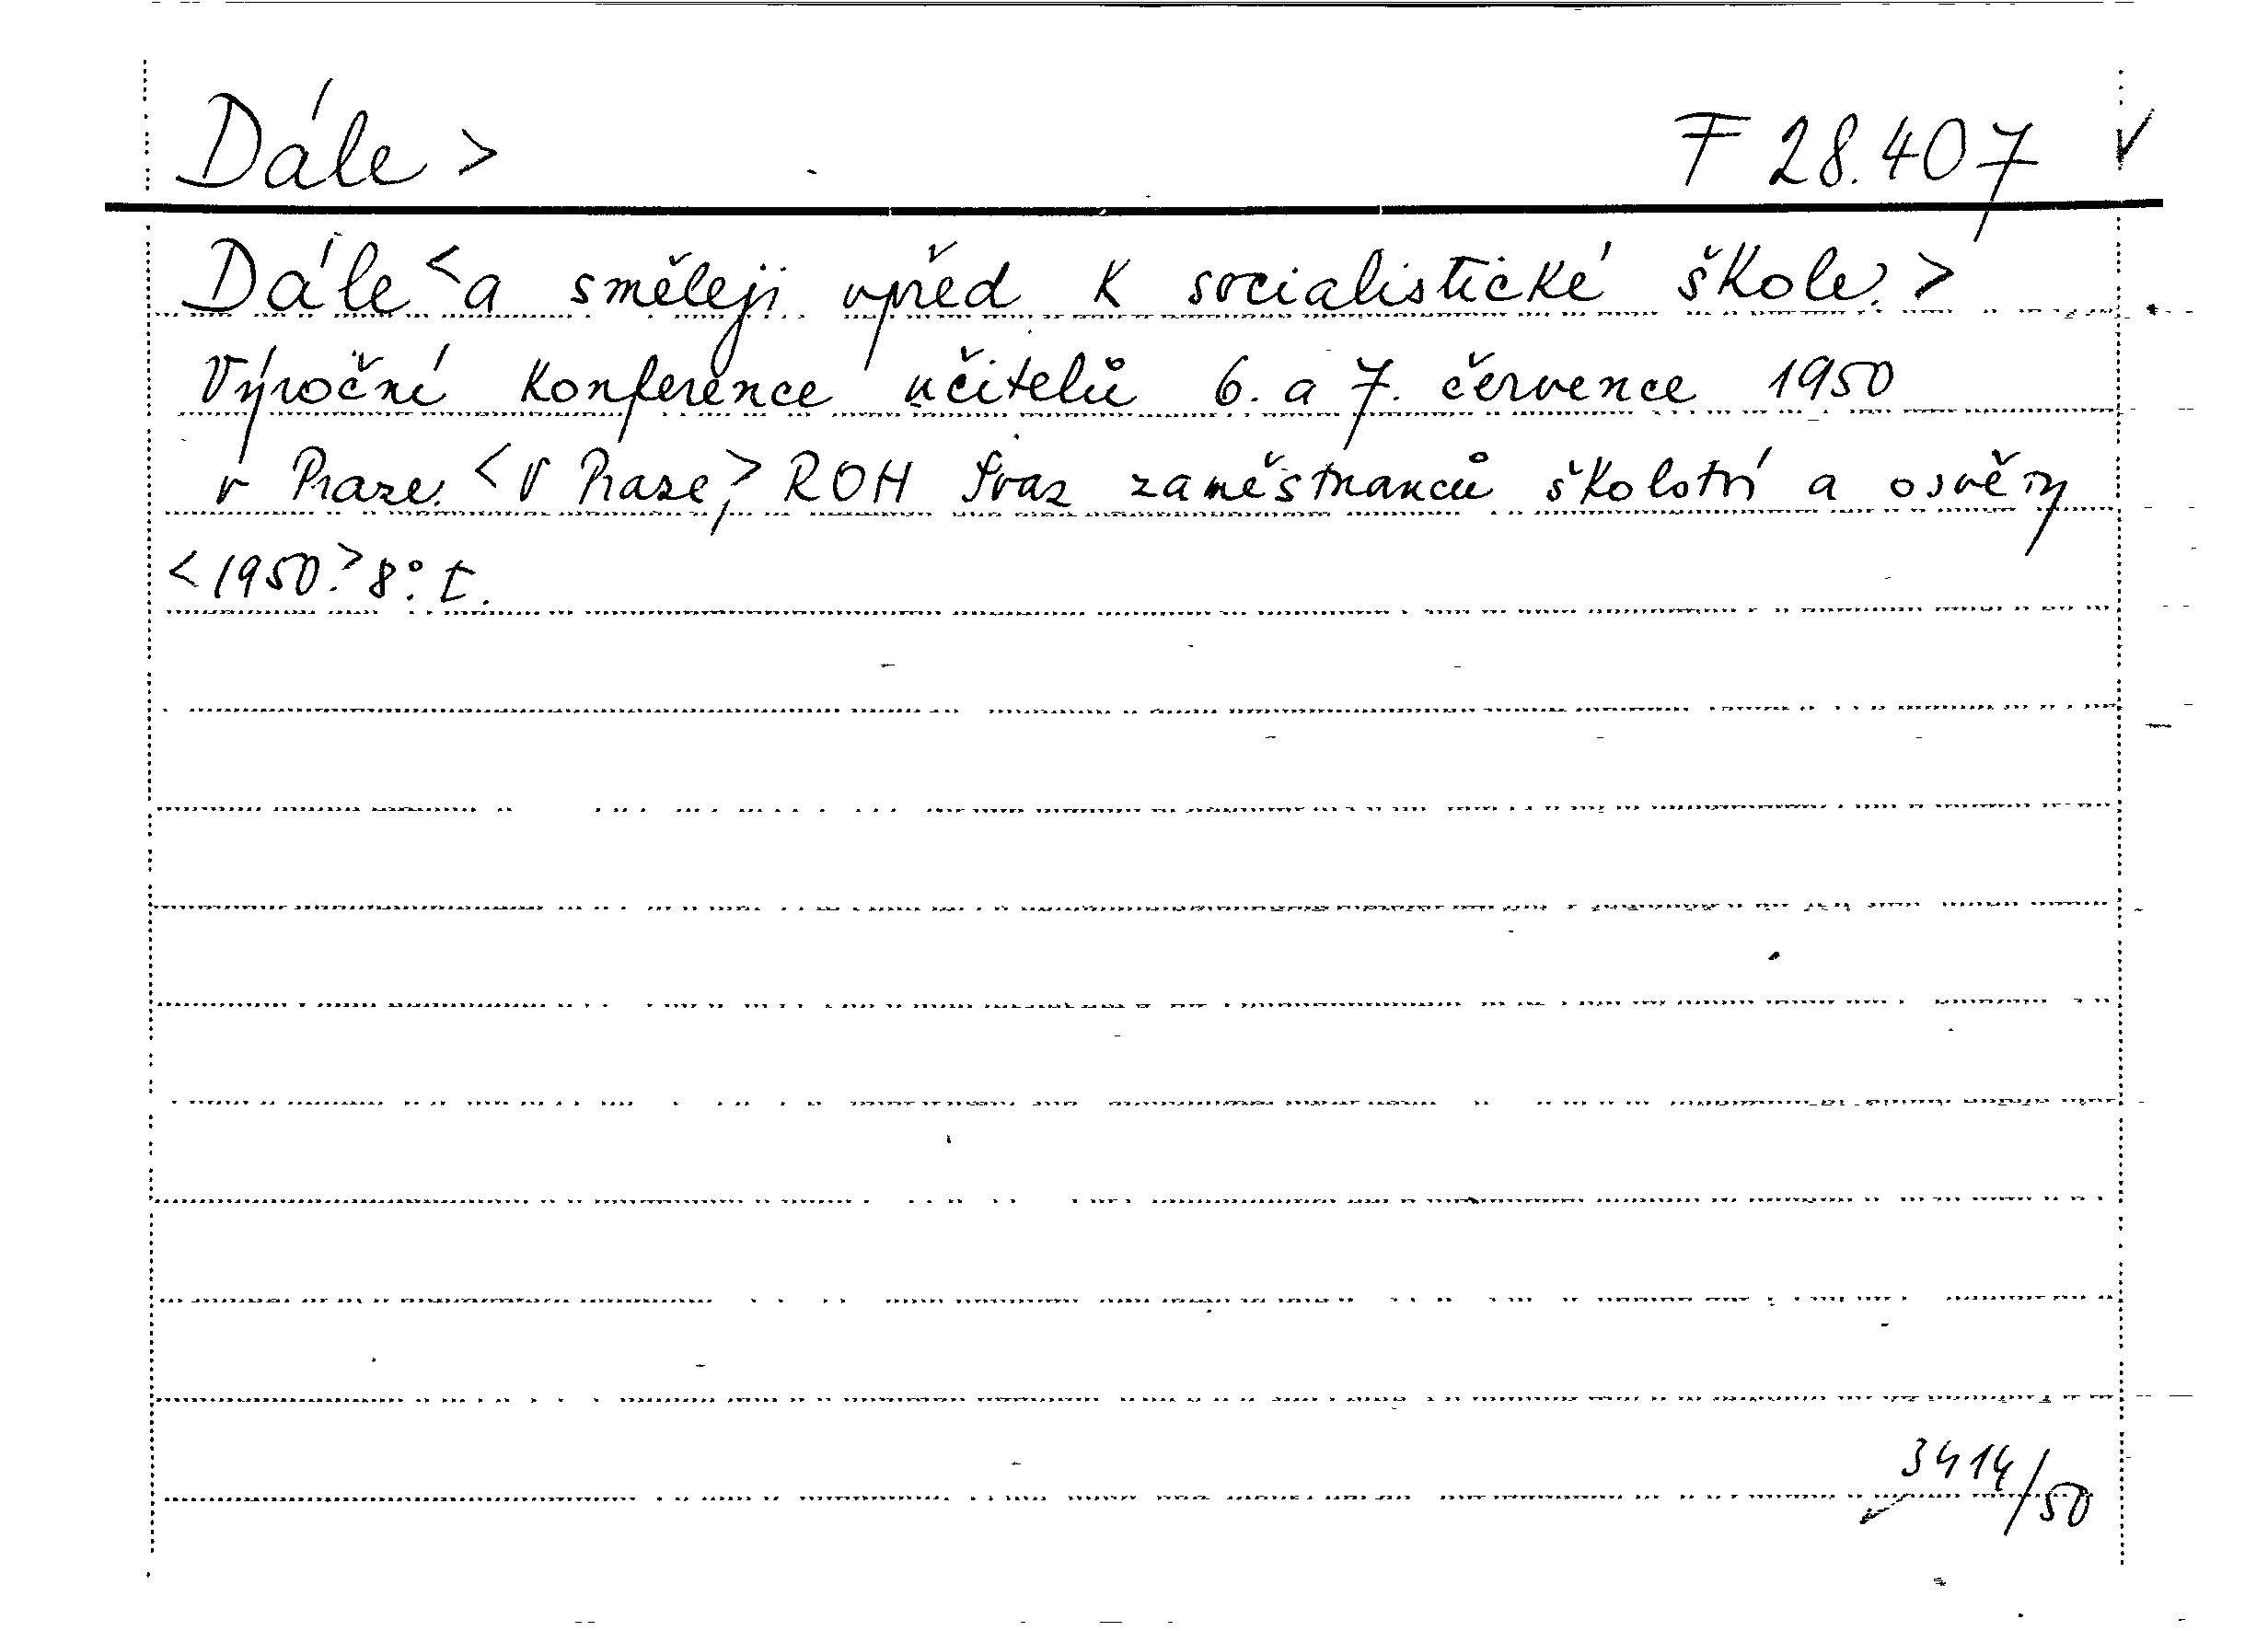 Dále > F 28.407 ✓
Dále < a směleji vpřed k socialistické škole. >
Výroční konference učitelů 6. a 7. července 1950
v Praze. < V Praze, > ROH Svaz zaměstnanců školství a osvěty
< 1950. > 8°. I.
3414/50